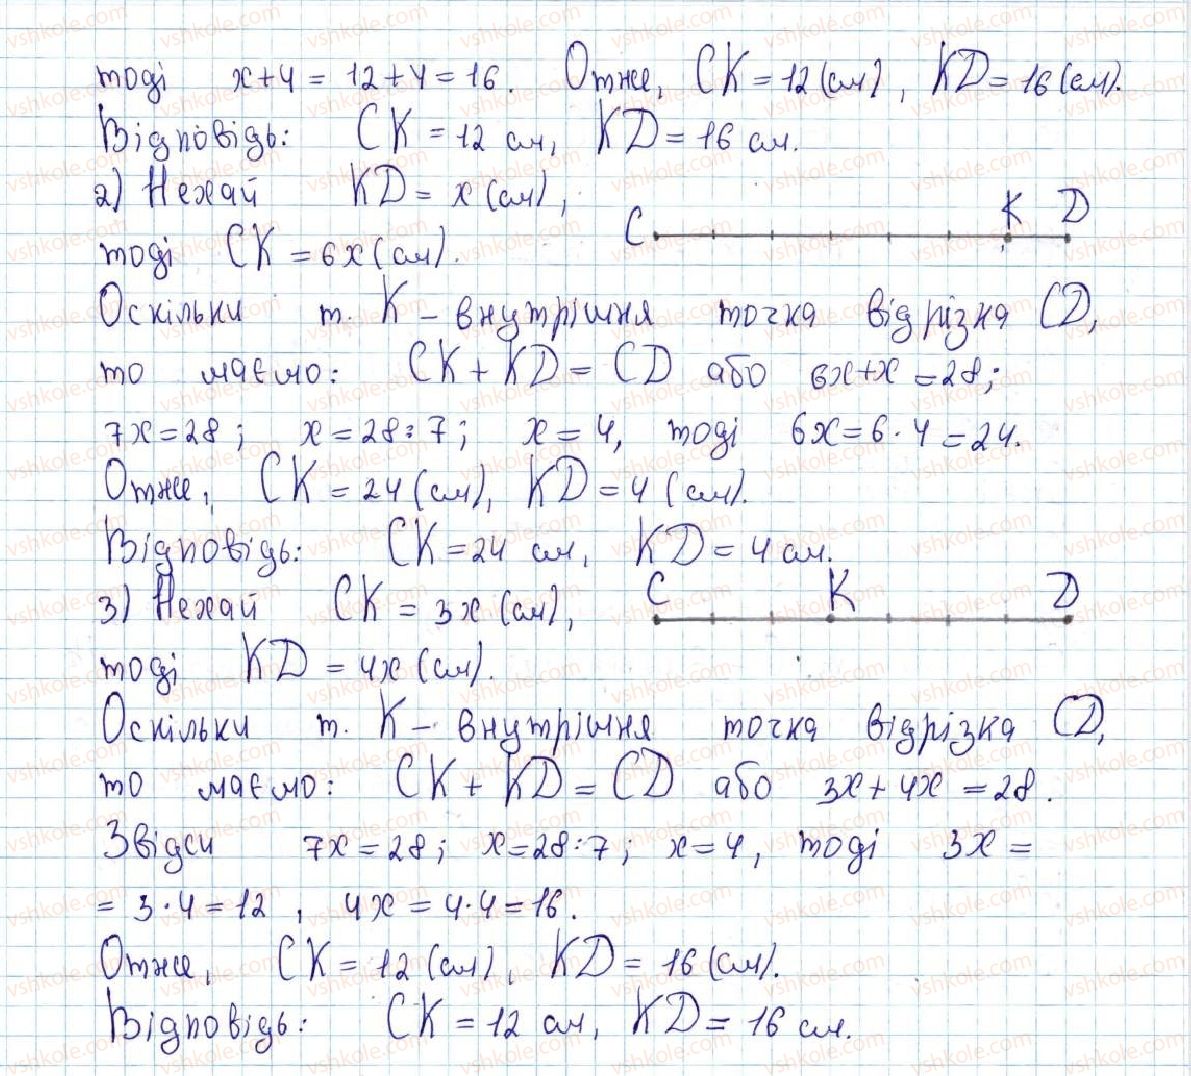 тоді x+4 = 12+4 = 16. Отже, CK = 12 (см), KD = 16 (см).
Відповідь: CK = 12 см, KD = 16 см.
2) Нехай KD = x (см),
C K D
тоді CK = 6x (см).
Оскільки т. K – внутрішня точка відрізка CD,
то маємо: CK + KD = CD або 6x+x = 28;
7x = 28; x = 28:7; x = 4, тоді 6x = 6·4 = 24.
Отже, CK = 24 (см), KD = 4 (см).
Відповідь: CK = 24 см, KD = 4 см.
3) Нехай CK = 3x (см),
C K D
тоді KD = 4x (см).
Оскільки т. K – внутрішня точка відрізка CD,
то маємо: CK + KD = CD або 3x + 4x = 28.
Звідси 7x = 28; x = 28:7; x = 4, тоді 3x =
= 3·4 = 12, 4x = 4·4 = 16.
Отже, CK = 12 (см), KD = 16 (см).
Відповідь: CK = 12 см, KD = 16 см.
vshkole.com